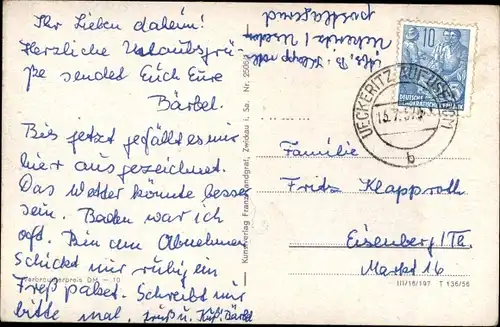 Ihr Lieben daheim!
Herzliche Urlaubsgrü-
ße sendet Euch Eure
Bärbel.
Bis jetzt gefällt es mir
hier ausgezeichnet.
Das Wetter könnte besser
sein. Baden war ich
oft. Bin am Abnehmen
Schickt mir ruhig ein
Freßpaket. Schreibt mir
bitte mal, Gruß u. Kuß, Bärbel
Abs. B. Klapproth
Ückeritz / Usedom
postlagernd
10
DEUTSCHE
DEMOKRATISCHE
UECKERITZ AUF USEDOM
b
Familie
Fritz Klapproth
Eisenberg/Th.
Markt 16
Kunstverlag Franz Landgraf, Zwickau i. Sa. Nr. 2506
Verbraucherpreis DM —.10
III/16/197 T 136/56